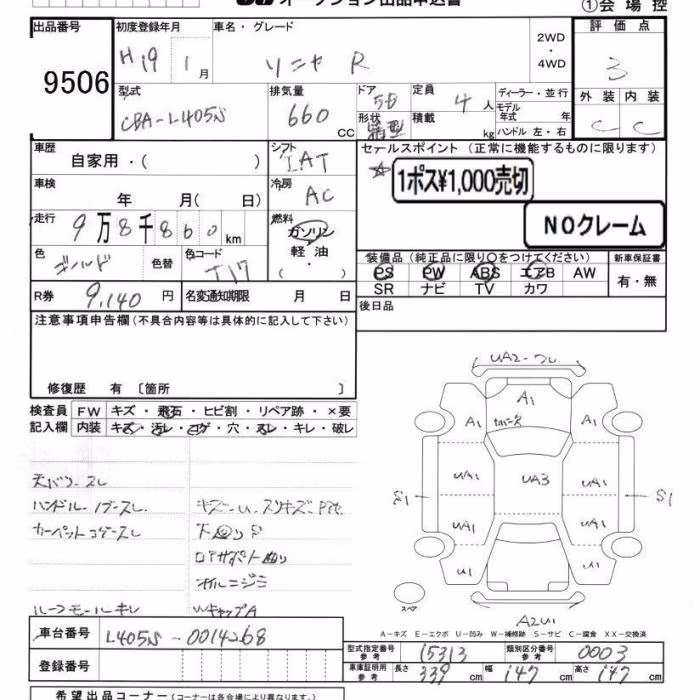 オークション出品申込書
①会場控
出品番号
9506
初度登録年月
H19 1 月
車名・グレード
ソニカ R
2WD
・
4WD
評価点
3
型式
CBA-L405S
排気量
660 CC
ドア
5D
形状
箱型
定員
4 人
積載
kg
ディーラー・並行
モデル
年式 年
ハンドル 左・右
外装 内装
C C
車歴
自家用・( )
シフト
IAT
セールスポイント (正常に機能するものに限ります)
☆
1ポス¥1,000売切
NOクレーム
車検
年 月( 日)
冷房
AC
走行
9万8千860km
燃料
ガソリン
軽油
( ・ )
色
ゴールド
色替
色コード
T17
装備品 (純正品に限り○をつけてください)
PS PW ABS エアB AW
SR ナビ TV カワ
新車保証書
有・無
R券
9,140 円
名変通知期限 月 日
後日品
注意事項申告欄(不具合内容等は具体的に記入して下さい)
修復歴 有 〔箇所 〕
検査員
記入欄
FW キズ・飛石・ヒビ割・リペア跡・×要
内装 キズ・汚レ・コゲ・穴・スレ・キレ・破レ
天バリ・スレ
ハンドル・
カーペットコゲ・スレ
下回リS
オルニジミ
ルーフモールキレ
WキャップA
UA2-フレ
A1
A1
A1
UA1
UA3
UA1
S1
S1
UA1
UA1
U1
U1
スペア
A2U1
A-キズ E-エクボ U-凹み W-補修跡 S-サビ C-腐食 XX-交換済
車台番号
L405S-0014268
登録番号
型式指定番号
参考
15313
類別区分番号
参考
0003
車庫証明用
参考
長さ 339 cm 幅 147 cm 高さ 147 cm
希望出品コーナー(コーナーは各会場により異なります)